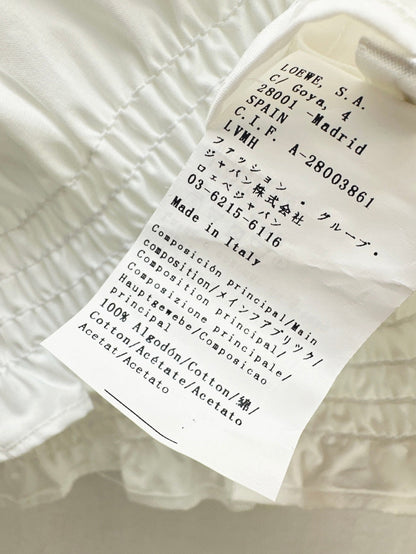 LOEWE, S.A.
C/ Goya, 4
28001 -Madrid
SPAIN
C.I.F. A-28003861
LVMH
ファッション・グループ・
ジャパン株式会社
ロエベジャパン
03-6215-6116
Made in Italy
Composición principal/Main
composition/メインファブリック/
Composition principal/
Composizione principale/
Hauptgewebe/Composicao
principal
100% Algodón/Cotton/綿/
Cotton/Acétate/Acetato
Acetat/Acetato